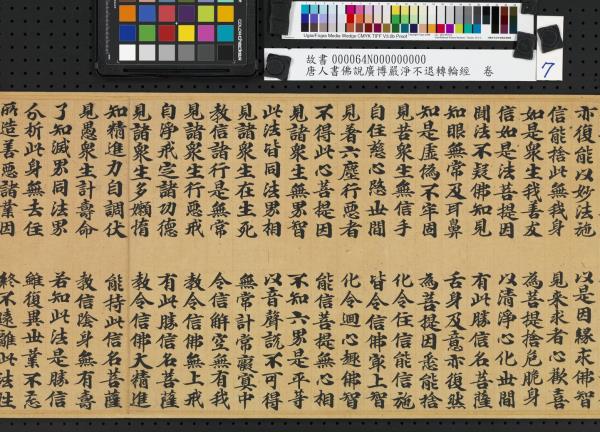 UgraFogra Media Wedge CMYK TIFF V3.0b Proof
故書 000064N000000000
唐人書佛說廣博嚴淨不退轉輪經 卷
7
亦復能以妙法施 以是因緣求佛智
信能捨此無我身 見來求者心歡喜
如是衆生我善友 為菩提捨危脆身
信如是法菩提因 以清淨心化世間
聞法不疑佛知見 有此勝信名菩薩
知眼無常及耳鼻 舌身及意亦復然
知是虛偽不牢固 為菩提因悉能捨
見昔衆生無信手 化令住信能信施
自住慈心愍世間 皆令信佛最上智
見善六塵行惡者 化令迴心趣佛智
不得此心菩提因 能信菩提無心相
見諸衆生無界智 不知六界是平等
此法皆同法界相 以音聲說不可得
見諸衆生在生死 無常計常中
教信諸行是無常 令信解空無有我
見諸衆生行惡戒 教令信佛無上戒
自淨戒定諸功德 有此勝信名菩薩
見諸衆生多嬾惰 教令信佛大精進
知精進力自調伏 能持此信名菩薩
見愚衆生計壽命 教信陰身無有壽
了知滅界同法界 若知此法是勝信
分析此身無去住 雖復異世業不忘
所造善惡諸業因 終不遠離此法性